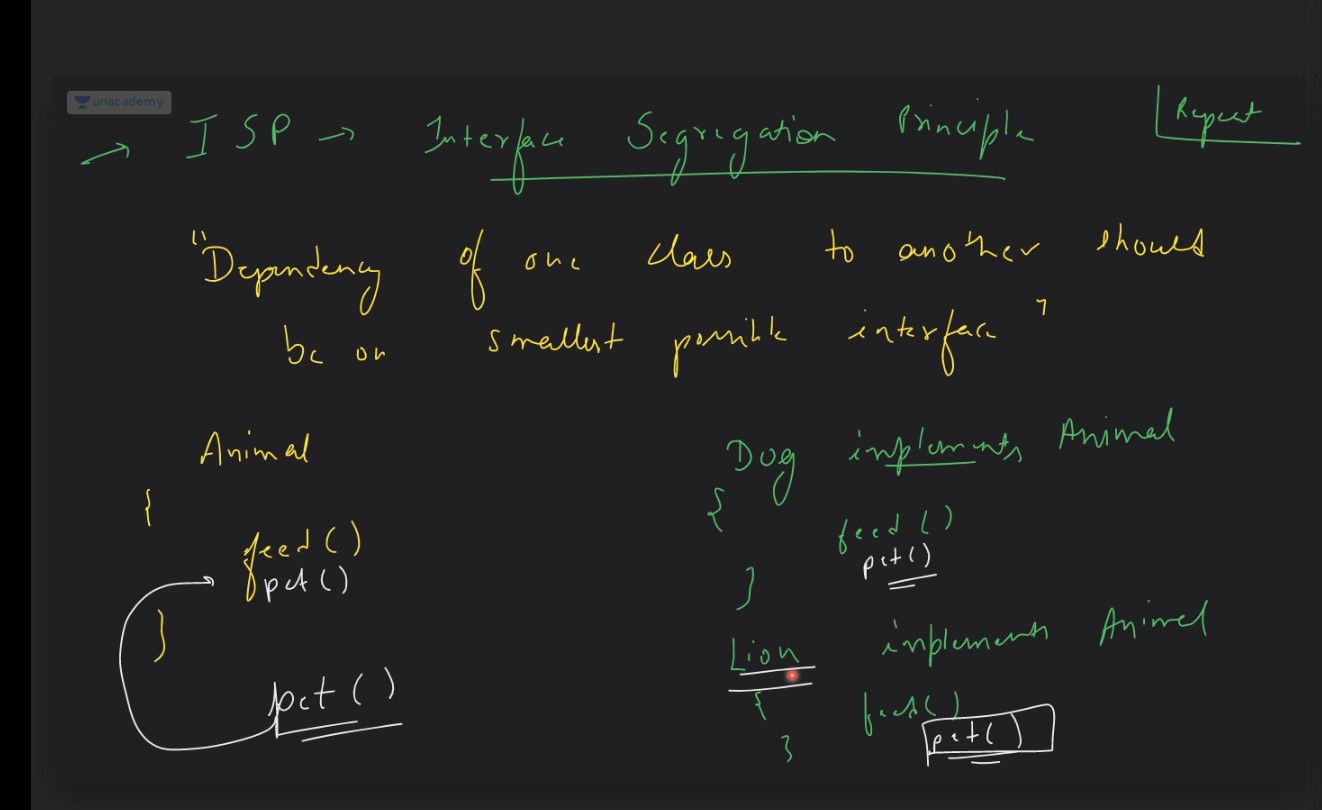 unacademy
→ ISP → Interface Segregation Principle
Repeat
"Dependency of one class to another should
be on smallest possible interface"
Animal
{
feed()
pet()
}
pet()
Dog implements Animal
{
feed()
pet()
}
Lion implements Animal
{
feed()
pet()
}